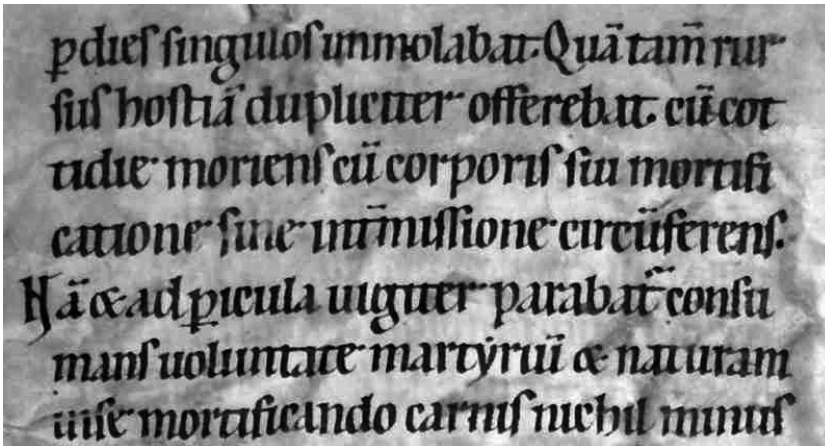 ꝑ dieſ ſinguloſ immolabat. Quā tam̄ rur
ſuſ hoſtiā dupliciter offerebat. cū cot
tidie morienſ cū corporiſ ſui mortifi
catione ſine int̄miſſione circūferenſ.
Nā & ad ꝑicula uigiter parabat᷑ conſu
manſ uoluntate martẏriū & naturam
iiſſe mortificando carniſ nichil minuſ